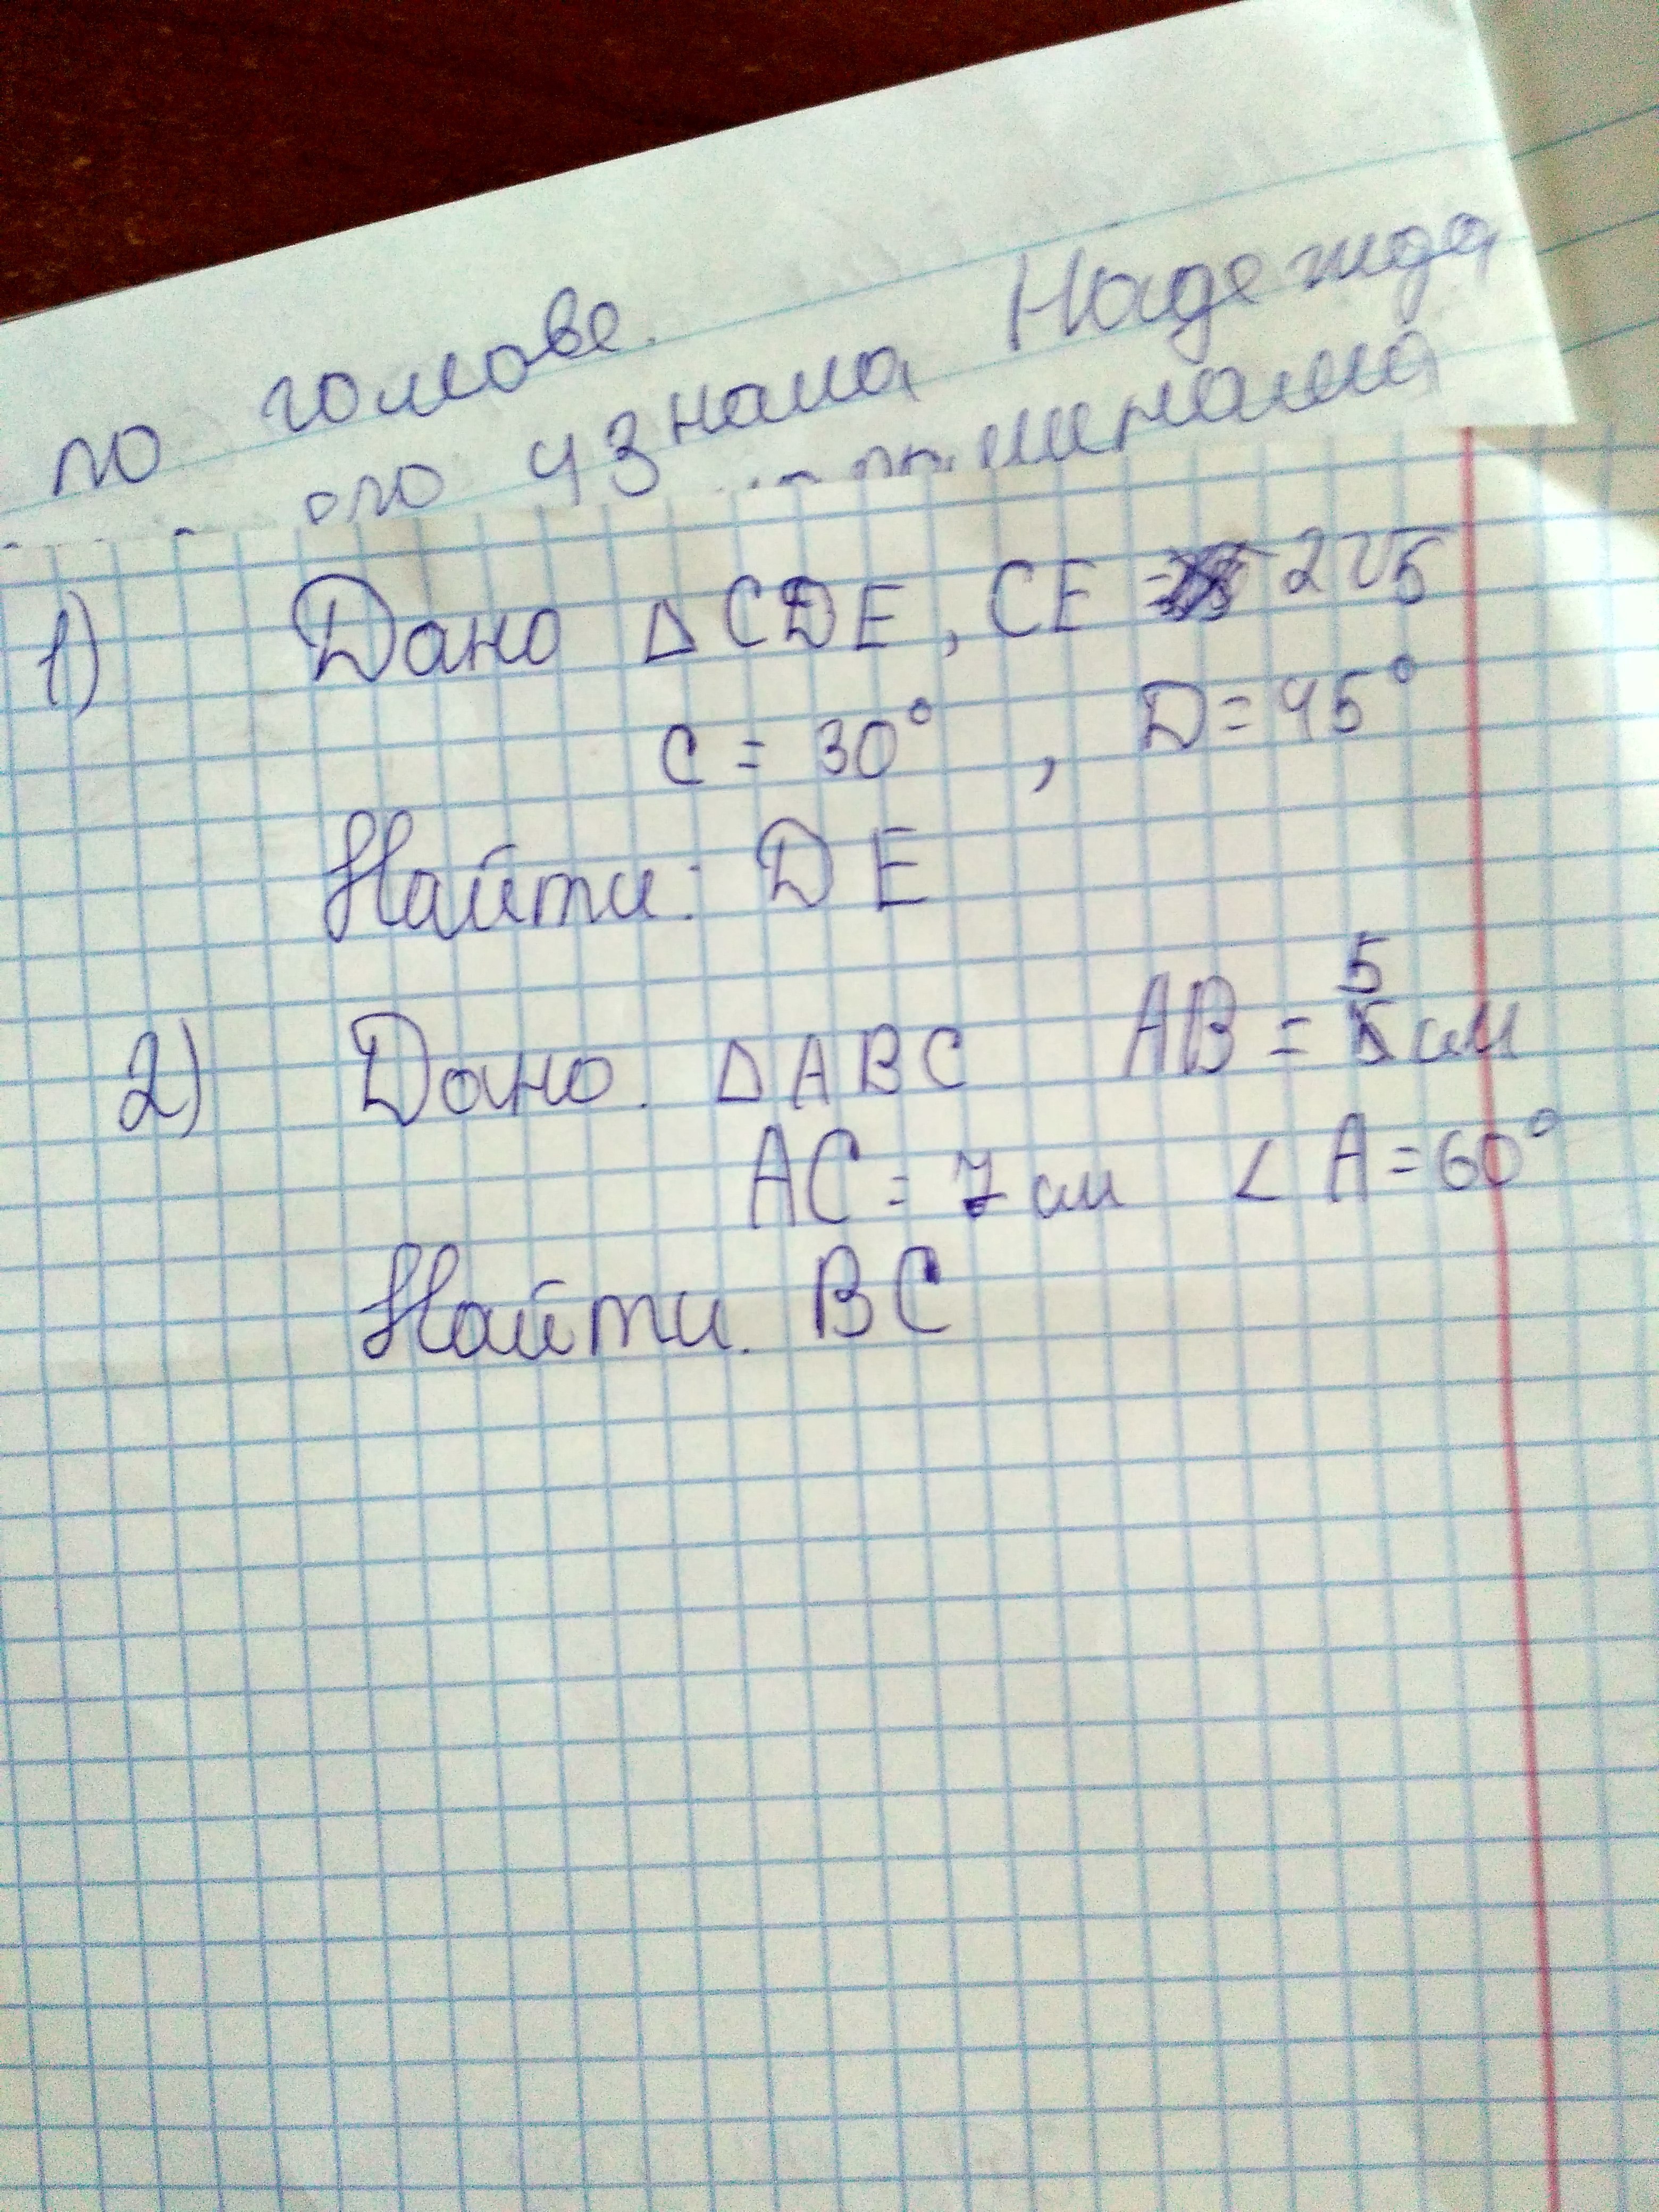 по голове.
ого узнала Надежда
1) Дано △CDE, CE = 2√5
C = 30°, D = 45°
Найти: DE
2) Дано. △ABC AB = 5 см
AC = 7 см ∠A = 60°
Найти. BC